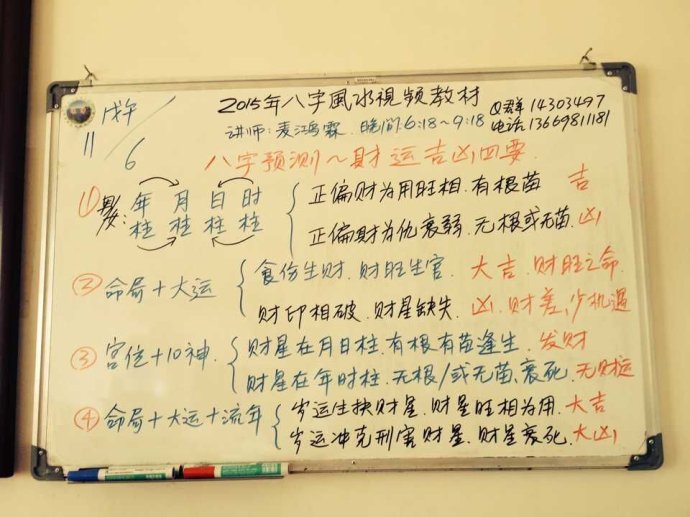 戊午
11/6
2015年八字風水視频教材
Q群14303497
讲师:麦鸿霖.晚间6:18~9:18
电话13669811181
八字预测~财运吉凶四要.
① 年 月 日 时
柱 柱 柱 柱
正偏财为用旺相.有根苗 吉
正偏财为仇衰弱.无根或无苗.凶
② 命局+大运
食伤生财.财旺生官. 大吉.财旺之命.
财印相破.财星缺失. 凶.财差,少机遇
③ 宫位+10神.
财星在月日柱.有根有苗逢生.发财
财星在年时柱.无根/或无苗、衰死.无财运
④ 命局+大运+流年
岁运生扶财星.财星旺相为用.大吉
岁运冲克刑害财星.财星衰死.大凶